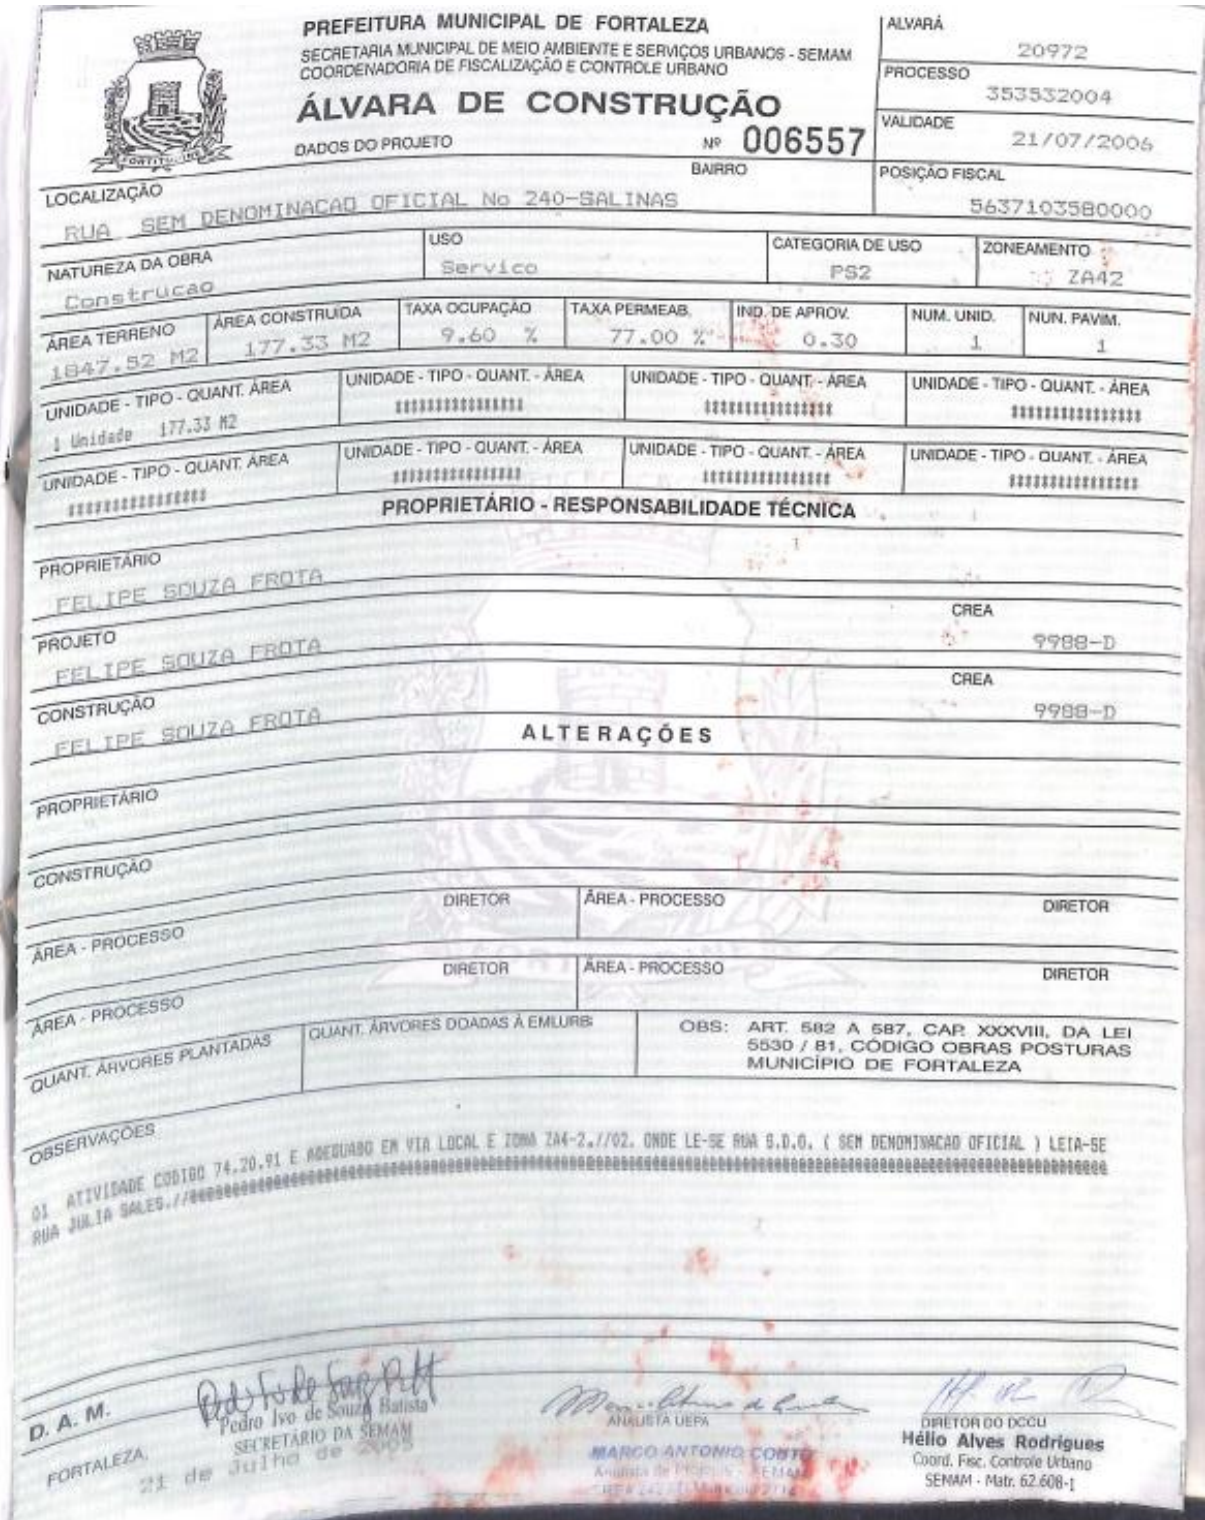 PREFEITURA MUNICIPAL DE FORTALEZA
SECRETARIA MUNICIPAL DE MEIO AMBIEINTE E SERVIÇOS URBANOS - SEMAM
COORDENADORIA DE FISCALIZAÇÃO E CONTROLE URBANO
ÁLVARA DE CONSTRUÇÃO
DADOS DO PROJETO Nº 006557
ALVARÁ
20972
PROCESSO
353532004
VALIDADE
21/07/2006
LOCALIZAÇÃO BAIRRO POSIÇÃO FISCAL
RUA SEM DENOMINACAO OFICIAL No 240-SALINAS 5637103580000
NATUREZA DA OBRA USO CATEGORIA DE USO ZONEAMENTO
Construcao Servico PS2 ZA42
ÁREA TERRENO ÁREA CONSTRUÍDA TAXA OCUPAÇÃO TAXA PERMEAB. IND. DE APROV. NUM. UNID. NUN. PAVIM.
1847.52 M2 177.33 M2 9.60 % 77.00 % 0.30 1 1
UNIDADE - TIPO - QUANT. ÁREA UNIDADE - TIPO - QUANT. - ÁREA UNIDADE - TIPO - QUANT. - ÁREA UNIDADE - TIPO - QUANT. - ÁREA
1 Unidade 177.33 M2
UNIDADE - TIPO - QUANT. ÁREA UNIDADE - TIPO - QUANT. - ÁREA UNIDADE - TIPO - QUANT. - ÁREA UNIDADE - TIPO - QUANT. - ÁREA
PROPRIETÁRIO - RESPONSABILIDADE TÉCNICA
PROPRIETÁRIO
FELIPE SOUZA FROTA
PROJETO CREA
FELIPE SOUZA FROTA 9988-D
CONSTRUÇÃO CREA
FELIPE SOUZA FROTA 9988-D
ALTERAÇÕES
PROPRIETÁRIO
CONSTRUÇÃO
ÁREA - PROCESSO DIRETOR ÁREA - PROCESSO DIRETOR
ÁREA - PROCESSO DIRETOR ÁREA - PROCESSO DIRETOR
QUANT. ÁRVORES PLANTADAS QUANT. ÁRVORES DOADAS À EMLURB:
OBS: ART. 582 A 587, CAP. XXXVIII, DA LEI
5530 / 81, CÓDIGO OBRAS POSTURAS
MUNICÍPIO DE FORTALEZA
OBSERVAÇÕES
01 ATIVIDADE CODIGO 74.20.91 E ADEQUADO EM VIA LOCAL E ZONA ZA4-2.//02. ONDE LE-SE RUA S.D.O. ( SEM DENOMINACAO OFICIAL ) LEIA-SE
RUA JULIA SALES.//
D. A. M.
Pedro Ivo de Souza Batista
SECRETÁRIO DA SEMAM
FORTALEZA,
21 de Julho de 2005
ANALISTA UEPA
MARCO ANTONIO COUTO
DIRETOR DO DCCU
Hélio Alves Rodrigues
Coord. Fisc. Controle Urbano
SEMAM - Matr. 62.608-1